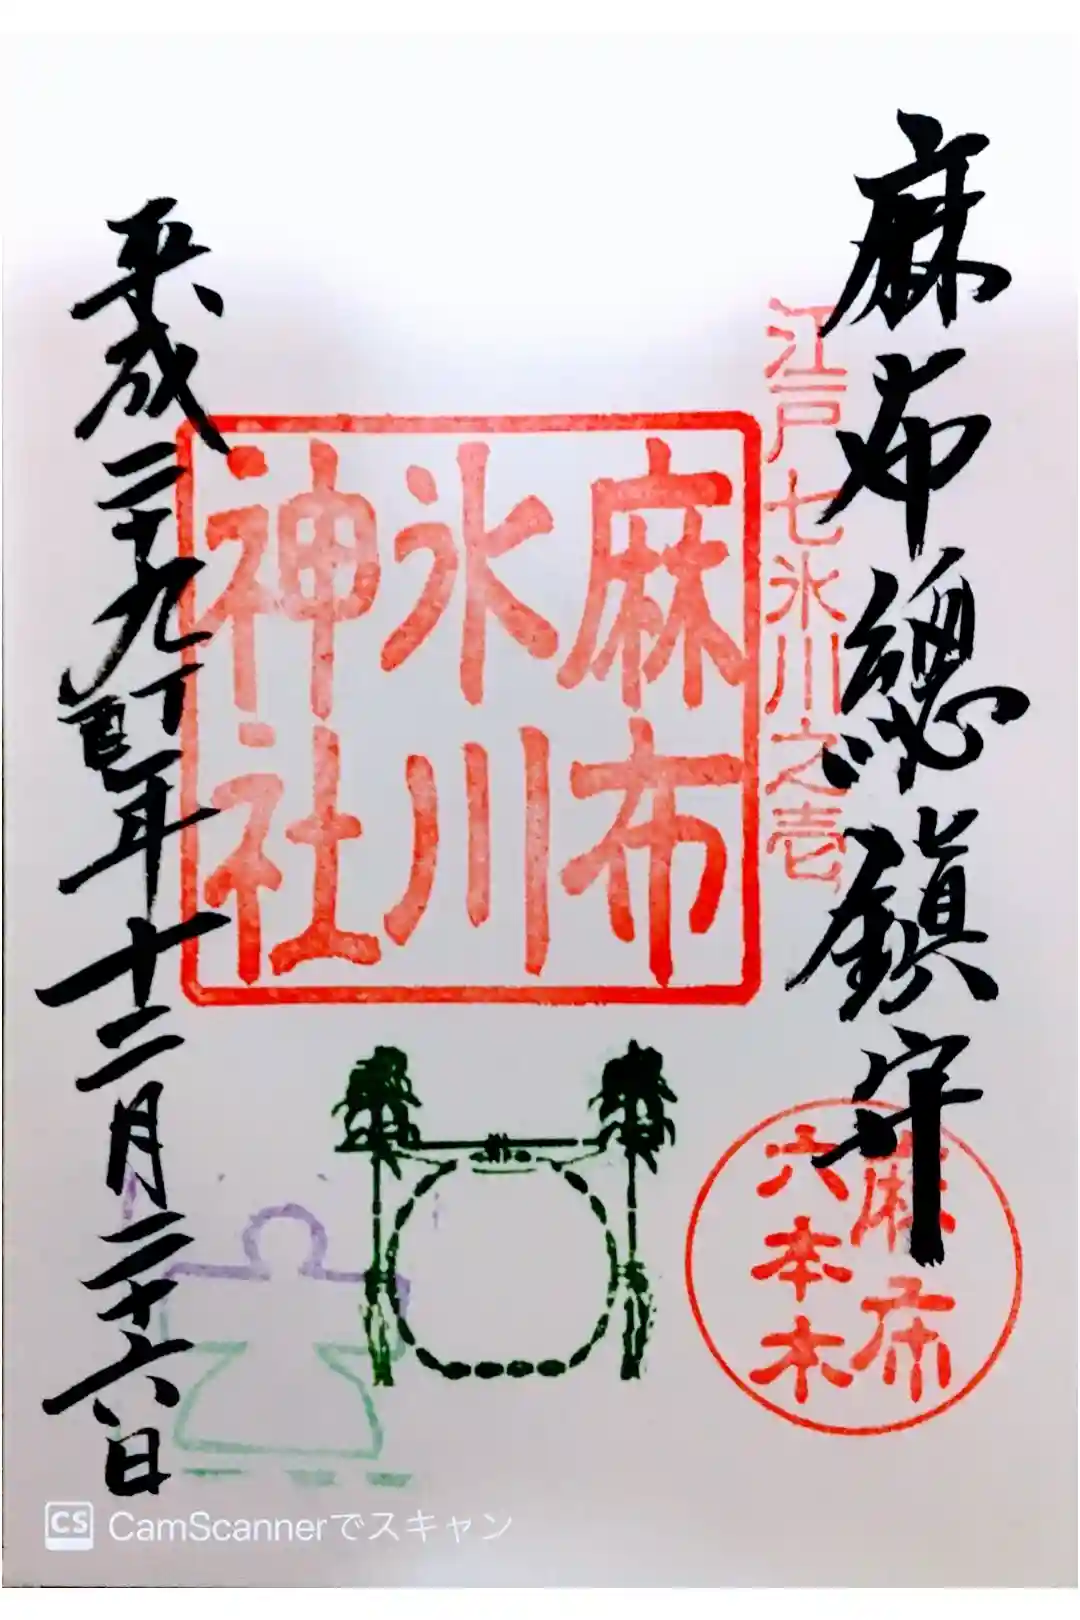 麻布總鎮守
江戸七氷川之壱
麻布
氷川
神社
麻布
六本木
平成二十九丁酉年十二月二十六日
CS CamScannerでスキャン